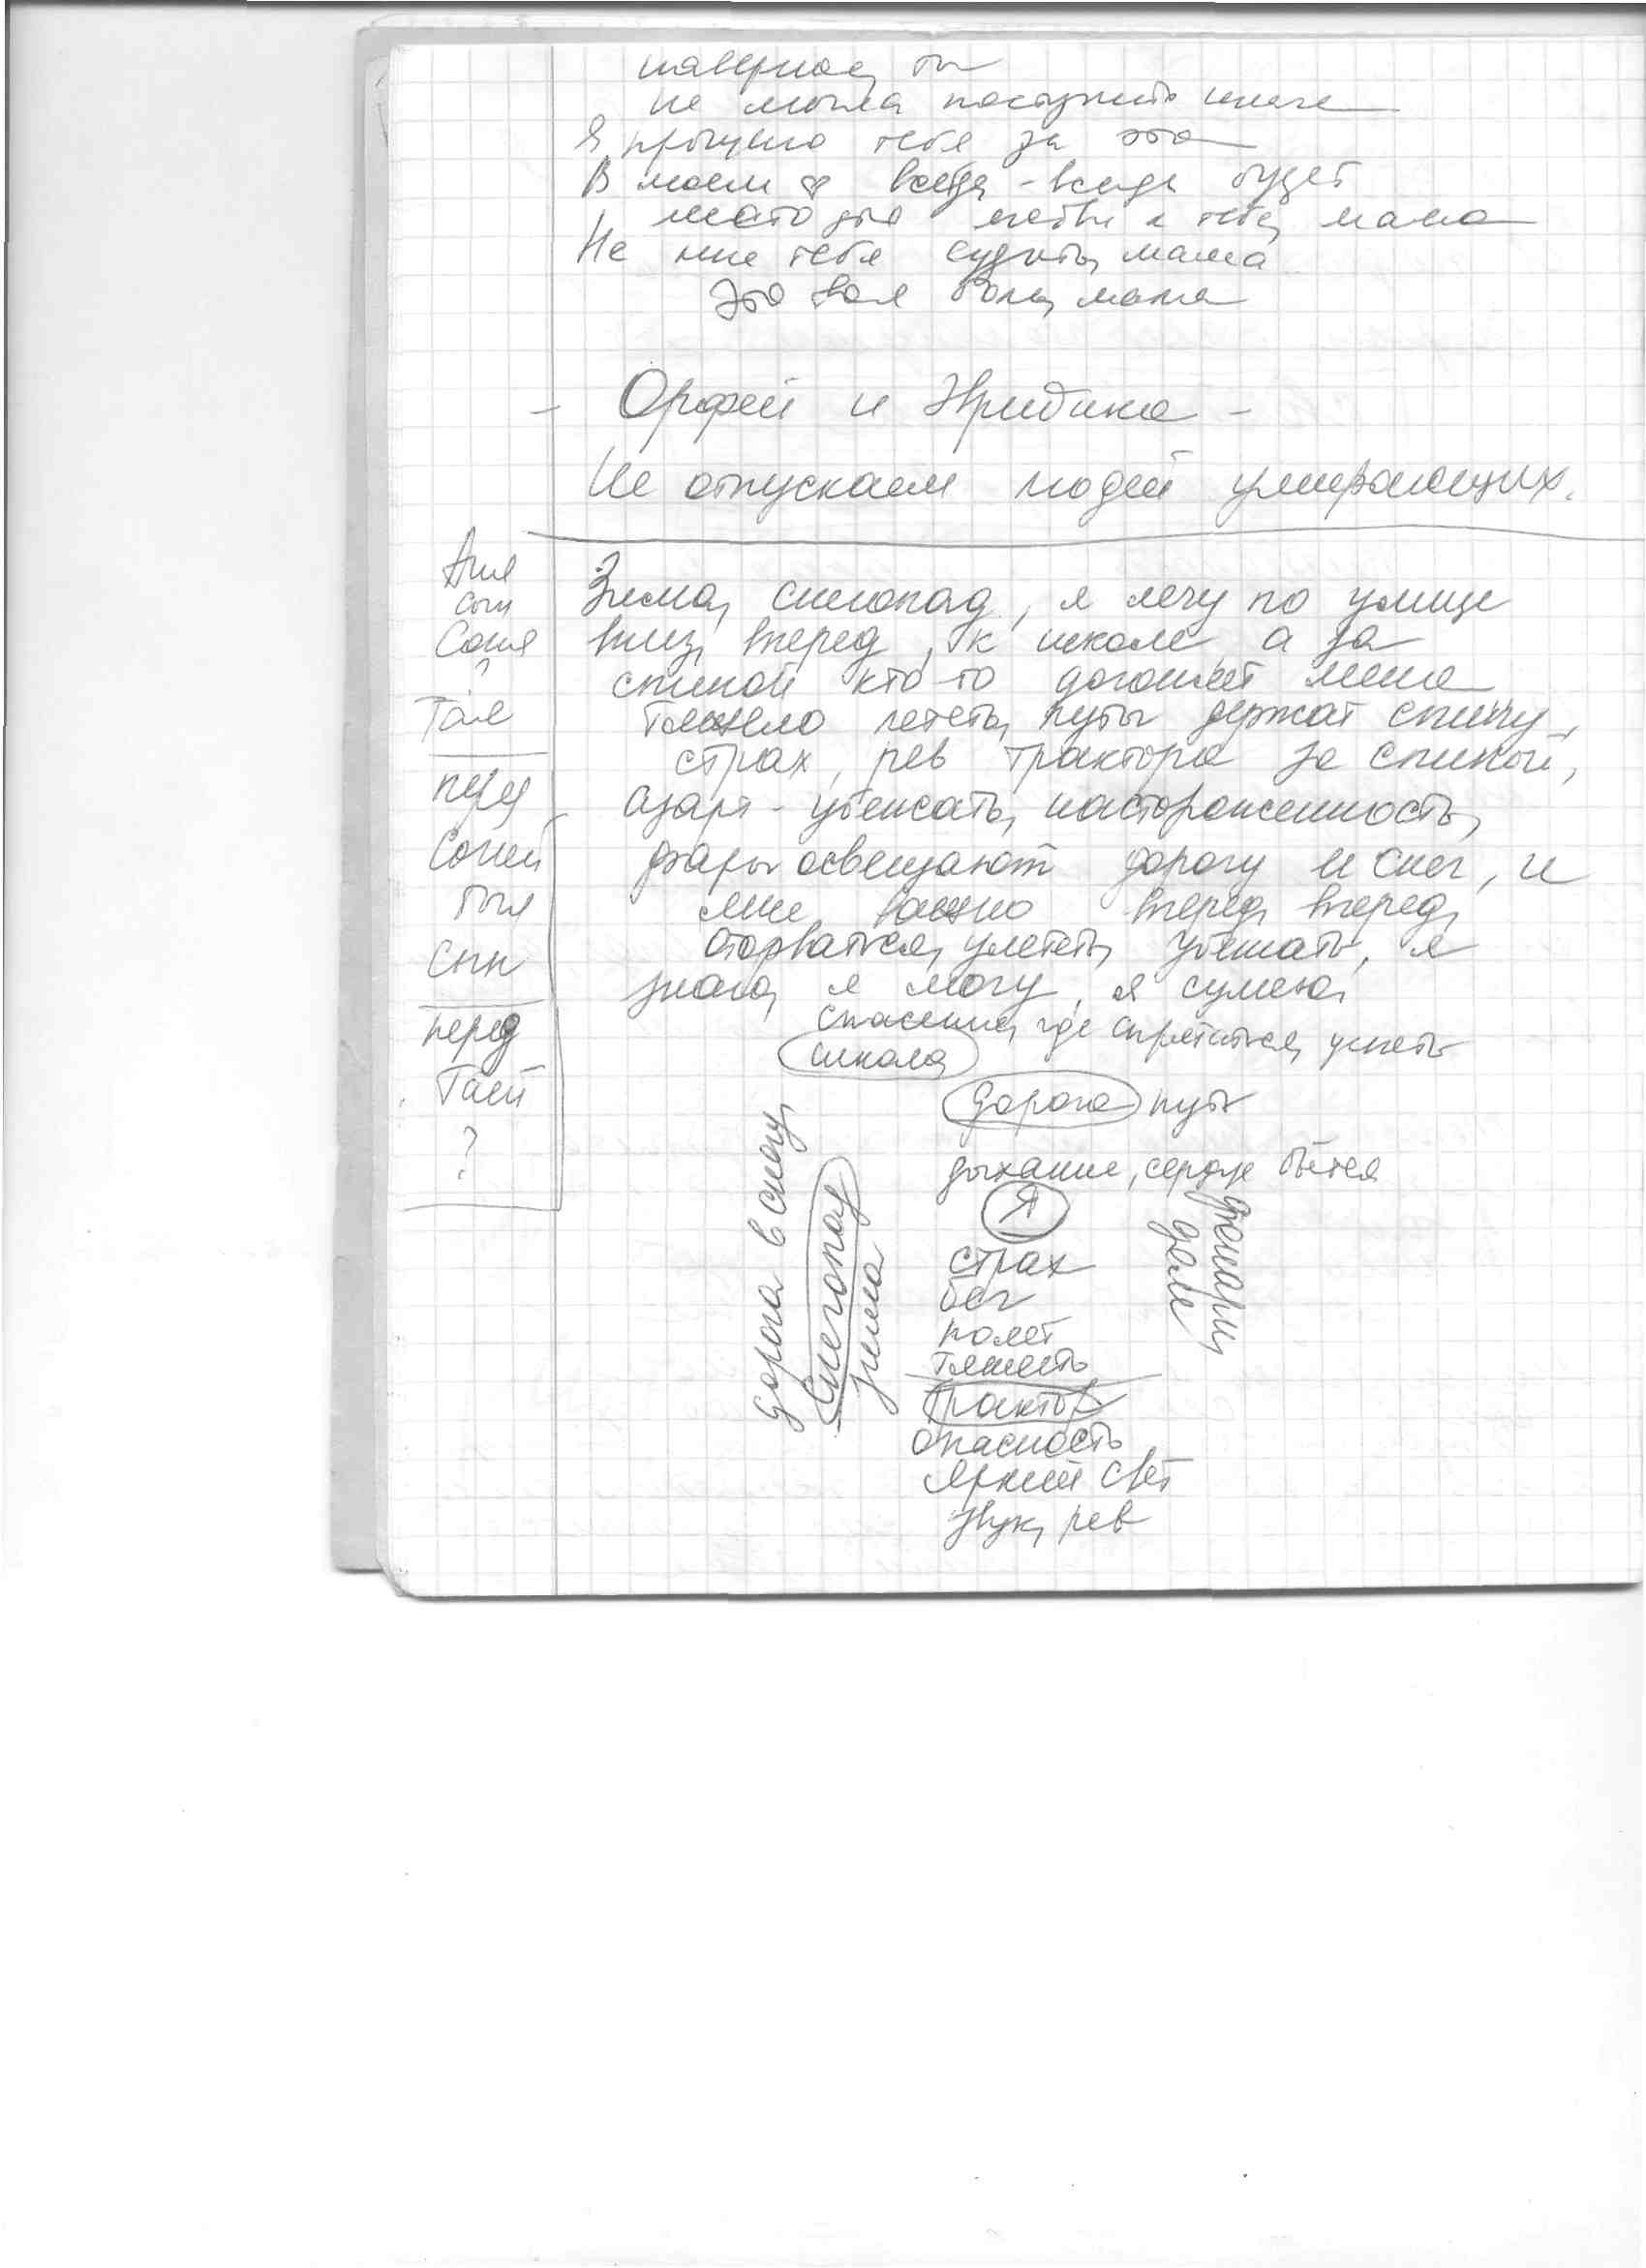 наверное, ты
не могла поступить иначе
Я прощаю тебя за это
В моем ♡ всегда-всегда будет
место для любви к тебе, мама
Не мне тебя судить, мама
Это твоя боль, мама
- Орфей и Эвридика -
Не отпускаем людей умирающих.
Аня
Соня
?
Тая
перед
Соней
был
сын
перед
Таей
?
Зима, снегопад, я лечу по улице
вниз, вперед, к школе, а за
спиной кто-то догоняет меня
Тяжело лететь, путы держат спину,
страх, рев трактора за спиной,
азарт - убежать, настороженность,
фары освещают дорогу и снег, и
мне важно вперед, вперед,
оторваться, улететь, убежать, я
знаю, я могу, я сумею,
спасение, где спрятаться, успеть
школа
дорога путь
дыхание, сердце бьется
Я
страх
бег
полет
тяжесть
трактор
опасность
яркий свет
звук, рев
дорога в снегу,
Снегопад
зима
фонари,
дали